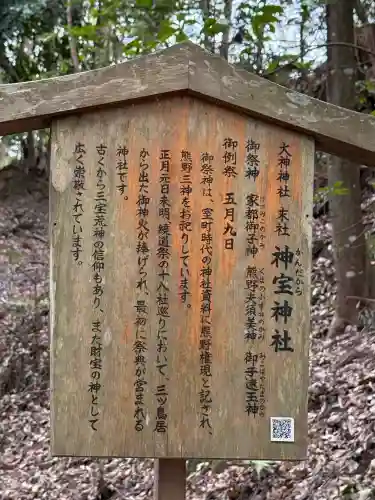 大神神社 末社 神宝神社
かんだから
御祭神 家都御子神 熊野夫須美神 御子速玉神
御例祭 五月九日
御祭神は、室町時代の神社資料に熊野権現と記され、
熊野三神をお祀りしています。
正月元日未明、繞道祭の十八社巡りにおいて、三ツ鳥居
から出た御神火が捧げられ、最初に祭典が営まれる
神社です。
古くから三宝荒神の信仰もあり、また財宝の神として
広く崇敬されています。